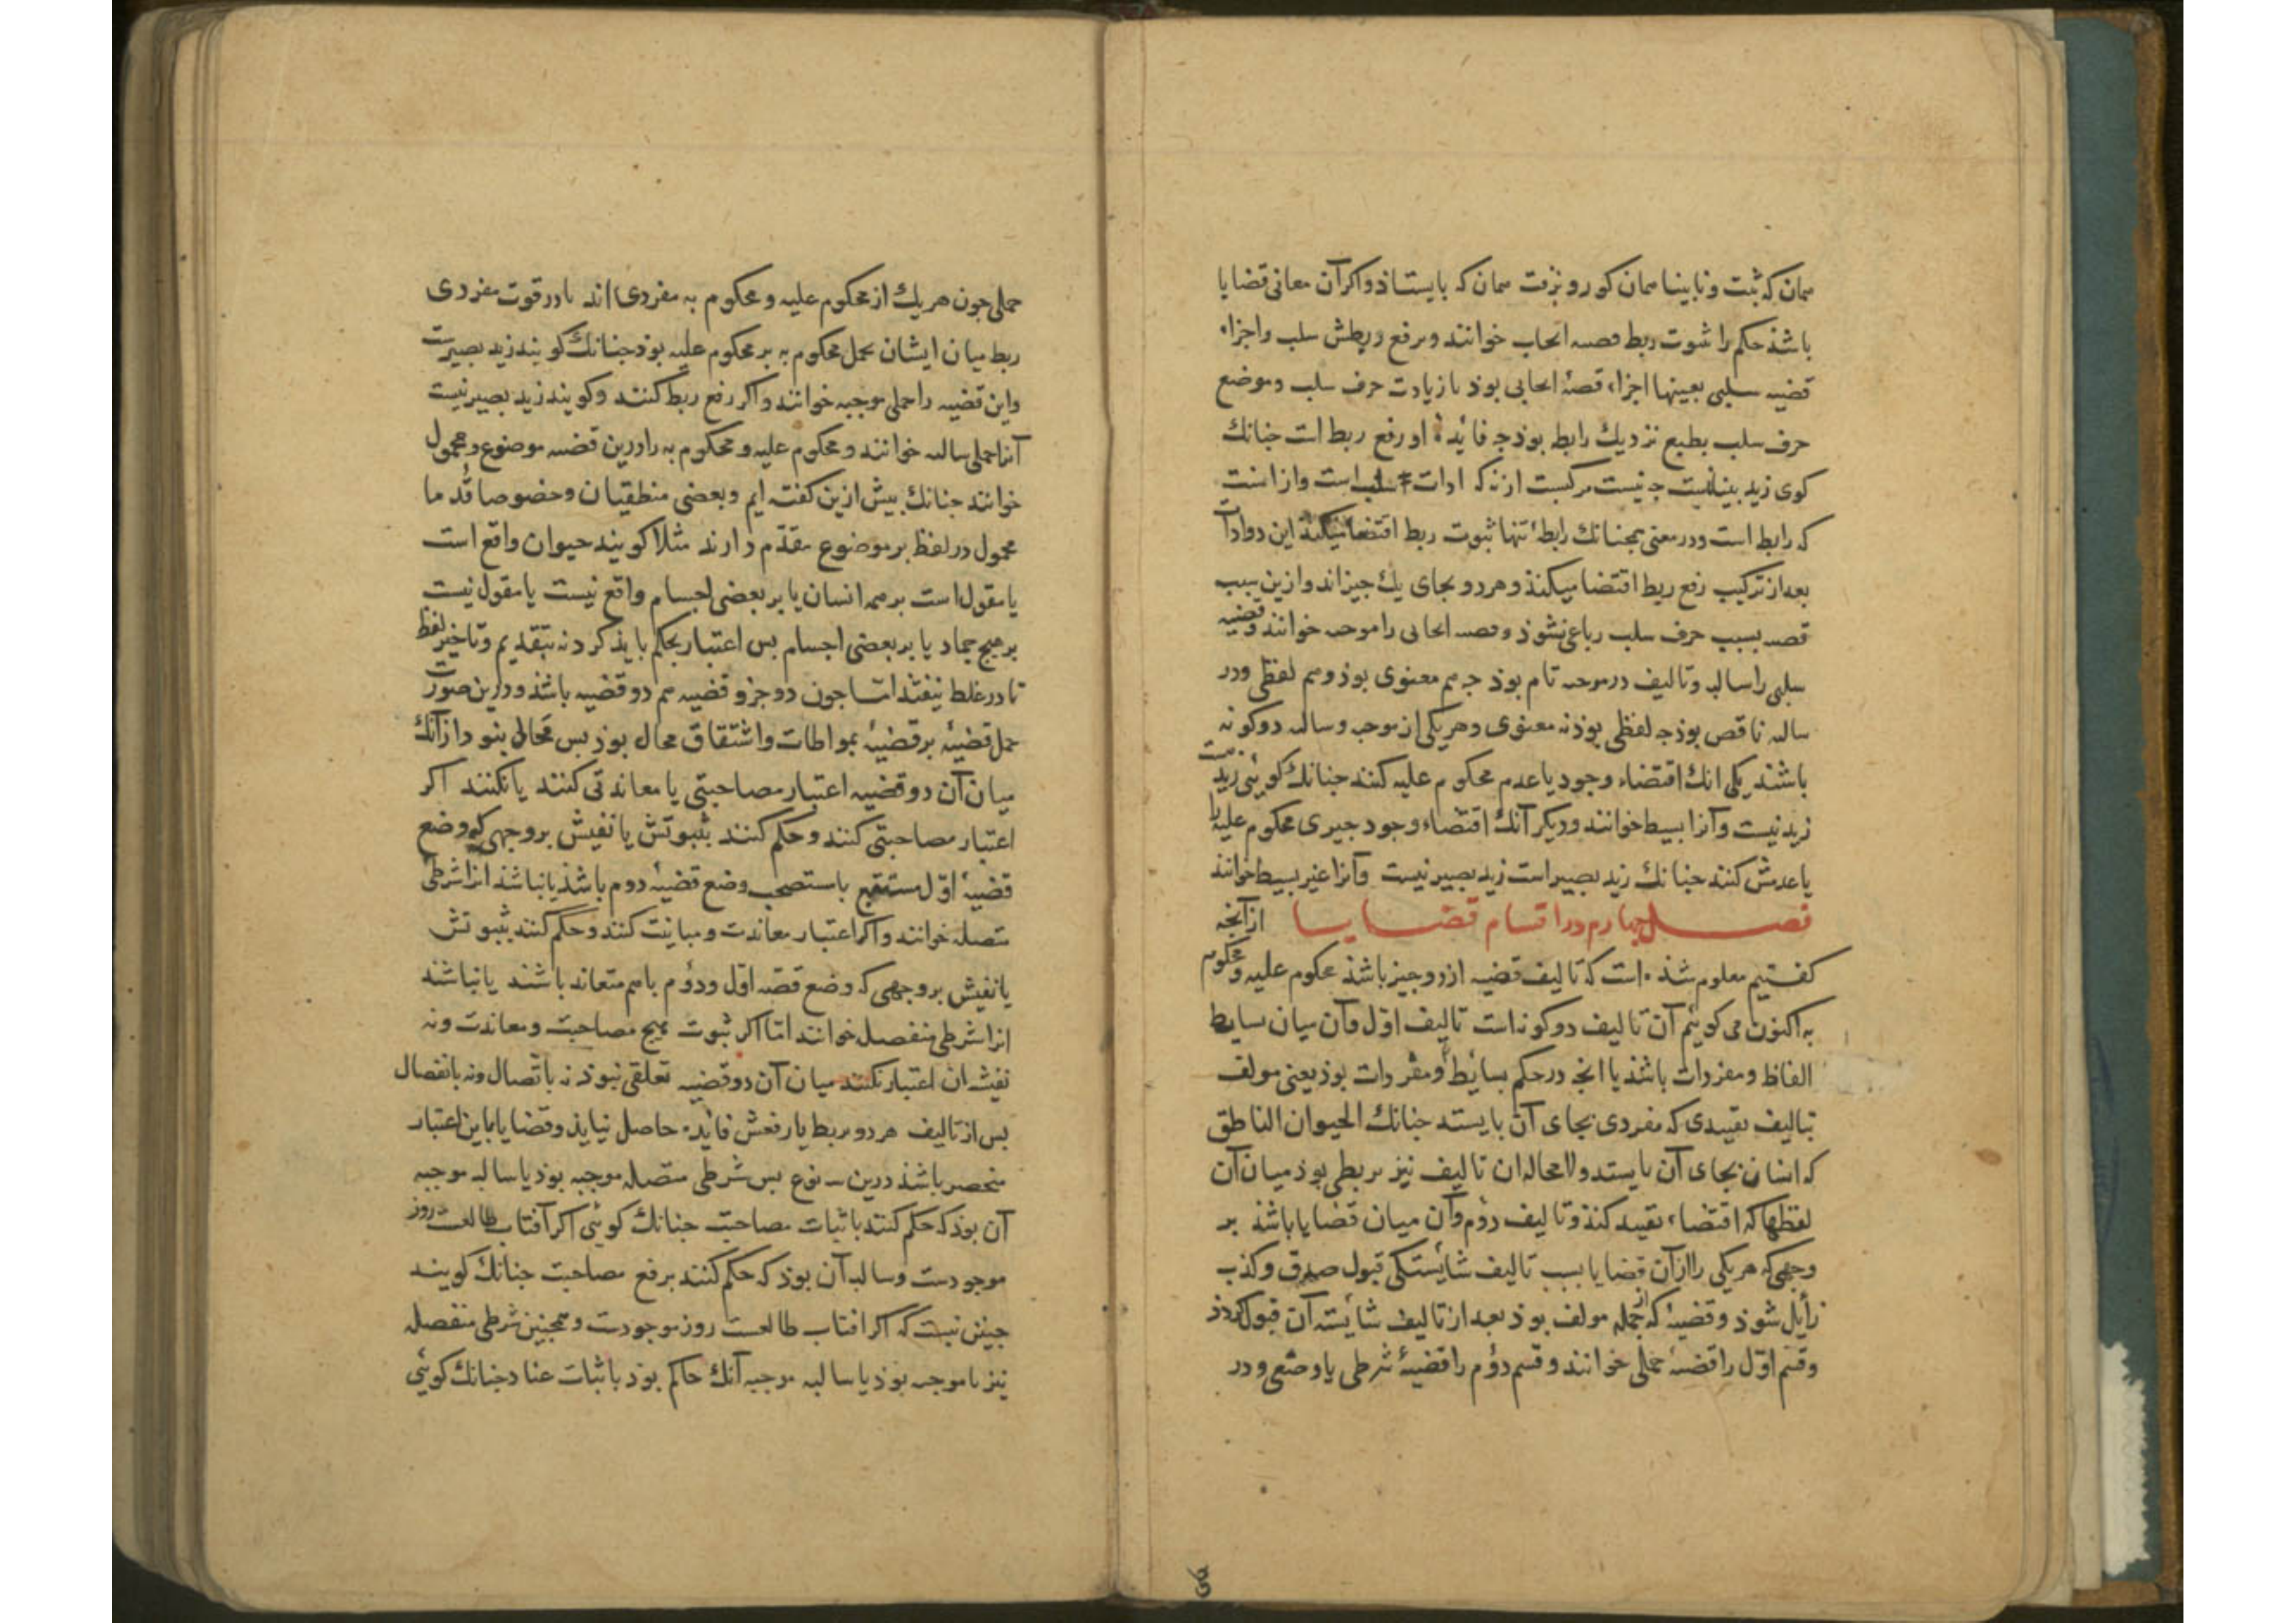 همان که ثبت و نابینا همان کور و نرفت همان که بایستاذ و اکر آن معانی قضایا
باشذ حکم را بثبوت ربط قصه ایجاب خوانند و برفع ربطش سلب واجزاء
قضیه سلبی بعینها اجزاء قصۀ ایجابی بوذ با زیادت حرف سلب و موضع
حرف سلب بطبع نزدیك رابط بوذ جه فائدۀ او رفع ربط است جنانك
کوی زید بینا نیست جه نیست مرکبست از نه که ادات سلب است و از است
که رابط است ودر معنی همجنانك رابطۀ تنها ثبوت ربط اقتضا میکند این دو ادات
بعد از ترکیب رفع ربط اقتضا میکنذ و هر دو بجای یك جیز اند و ازین سبب
قصه بسبب حرف سلب رباعی نشوذ و قصه ایجابی را موجبه خوانند و قضیه
سلبی را سالبه و تالیف در موجبه تام بوذ جه هم معنوی بوذ و هم لفظی ودر
سالبه ناقص بوذ جه لفظی بوذ نه معنوی و هر یکی از موجبه و سالبه دو کونه
باشند یکی انك اقتضاء وجود یا عدم محکوم علیه کنند جنانك کوئی زید هست
زید نیست و آنرا بسیط خوانند و دیکر آنك اقتضاء وجود جیزی محکوم علیه را
یا عدمش کنند جنانك زید بصیر است زید بصیر نیست و آنرا غیر بسیط خوانند
فصل جهارم در اقسام قضایا از آنجه
کفتیم معلوم شذه است که تالیف قضیه از دو جیز باشذ محکوم علیه و محکوم
به اکنون می کوئیم آن تالیف دو کونه است تالیف اوّل و آن میان بسایط
الفاظ و مفردات باشذ یا انجه در حکم بسائط و مفردات بوذ یعنی مولف
بتالیف تقییدی که مفردی بجای آن بایستد جنانك الحیوان الناطق
که انسان بجای آن بایستد ولا محاله ان تالیف نیز بربطی بوذ میان آن
لفظها که اقتضاء تقیید کنذ و تالیف دوّم و آن میان قضایا باشذ بر
وجهی که هر یکی را از آن قضایا بسبب تالیف شایستکی قبول صدق و کذب
زایل شوذ و قضیۀ که از جمله مولف بوذ بعد از تالیف شایسته آن قبول کردذ
و قسم اوّل را قضیۀ حملی خوانند و قسم دوّم را قضیۀ شرطی یا وضعی و در
حملی جون هر یك از محکوم علیه و محکوم به مفردی اند یا در قوت مفردی
ربط میان ایشان بحمل محکوم به بر محکوم علیه بوذ جنانك کویند زید بصیرست
و این قضیه را حملی موجبه خوانند و اکر رفع ربط کنند و کویند زید بصیر نیست
آنرا حملی سالبه خوانند و محکوم علیه و محکوم به را درین قضیه موضوع و محمول
خوانند جنانك بیش ازین کفته ایم و بعضی منطقیان و خصوصا قدما
محمول در لفظ بر موضوع مقدّم دارند مثلا کویند حیوان واقع است
یا مقول است بر همه انسان یا بر بعضی اجسام واقع نیست یا مقول نیست
بر هیج جماد یا بر بعضی اجسام بس اعتبار بحکم بایذ کرد نه بتقدیم و تاخیر لفظ
تا در غلط نیفتد امّا جون دو جزو قضیه هم دو قضیه باشذ و درین صورت
حمل قضیۀ بر قضیۀ بمواطات و اشتقاق محال بوذ بس خالی نبود از آنك
میان آن دو قضیه اعتبار مصاحبتی یا معاندتی کنند یا نکنند اکر
اعتبار مصاحبتی کنند و حکم کنند بثبوتش یا نفیش بر وجهی که وضع
قضیۀ اوّل مستتبع یا مستصحب وضع قضیۀ دوم باشذ یا نباشذ انرا شرطی
متصله خوانند و اکر اعتبار معاندت و مباینت کنند و حکم کنند بثبوتش
یا نفیش بر وجهی که وضع قصّه اوّل و دوّم با هم متعاند باشند یا نباشند
انرا شرطی منفصل خوانند امّا اکر ثبوت هیج مصاحبت و معاندت و نه
نفیشان اعتبار نکنند میان آن دو قضیه تعلّقی نبوذ نه باتّصال و نه بانفصال
بس از تالیف هر دو بربط یا رفعش فایده حاصل نیایذ و قضایا باین اعتبار
منحصر باشذ درین سه نوع بس شرطی متصله موجبه بوذ یا سالبه موجبه
آن بوذ که حکم کنند باثبات مصاحبت جنانك کوئی اکر آفتاب طالعست روز
موجودست و سالبه آن بوذ که حکم کنند برفع مصاحبت جنانك کویند
جنین نیست که اکر افتاب طالعست روز موجودست و همجنین شرطی منفصله
نیز یا موجبه بوذ یا سالبه موجبه آنك حاکم بوذ باثبات عناد جنانك کوئی